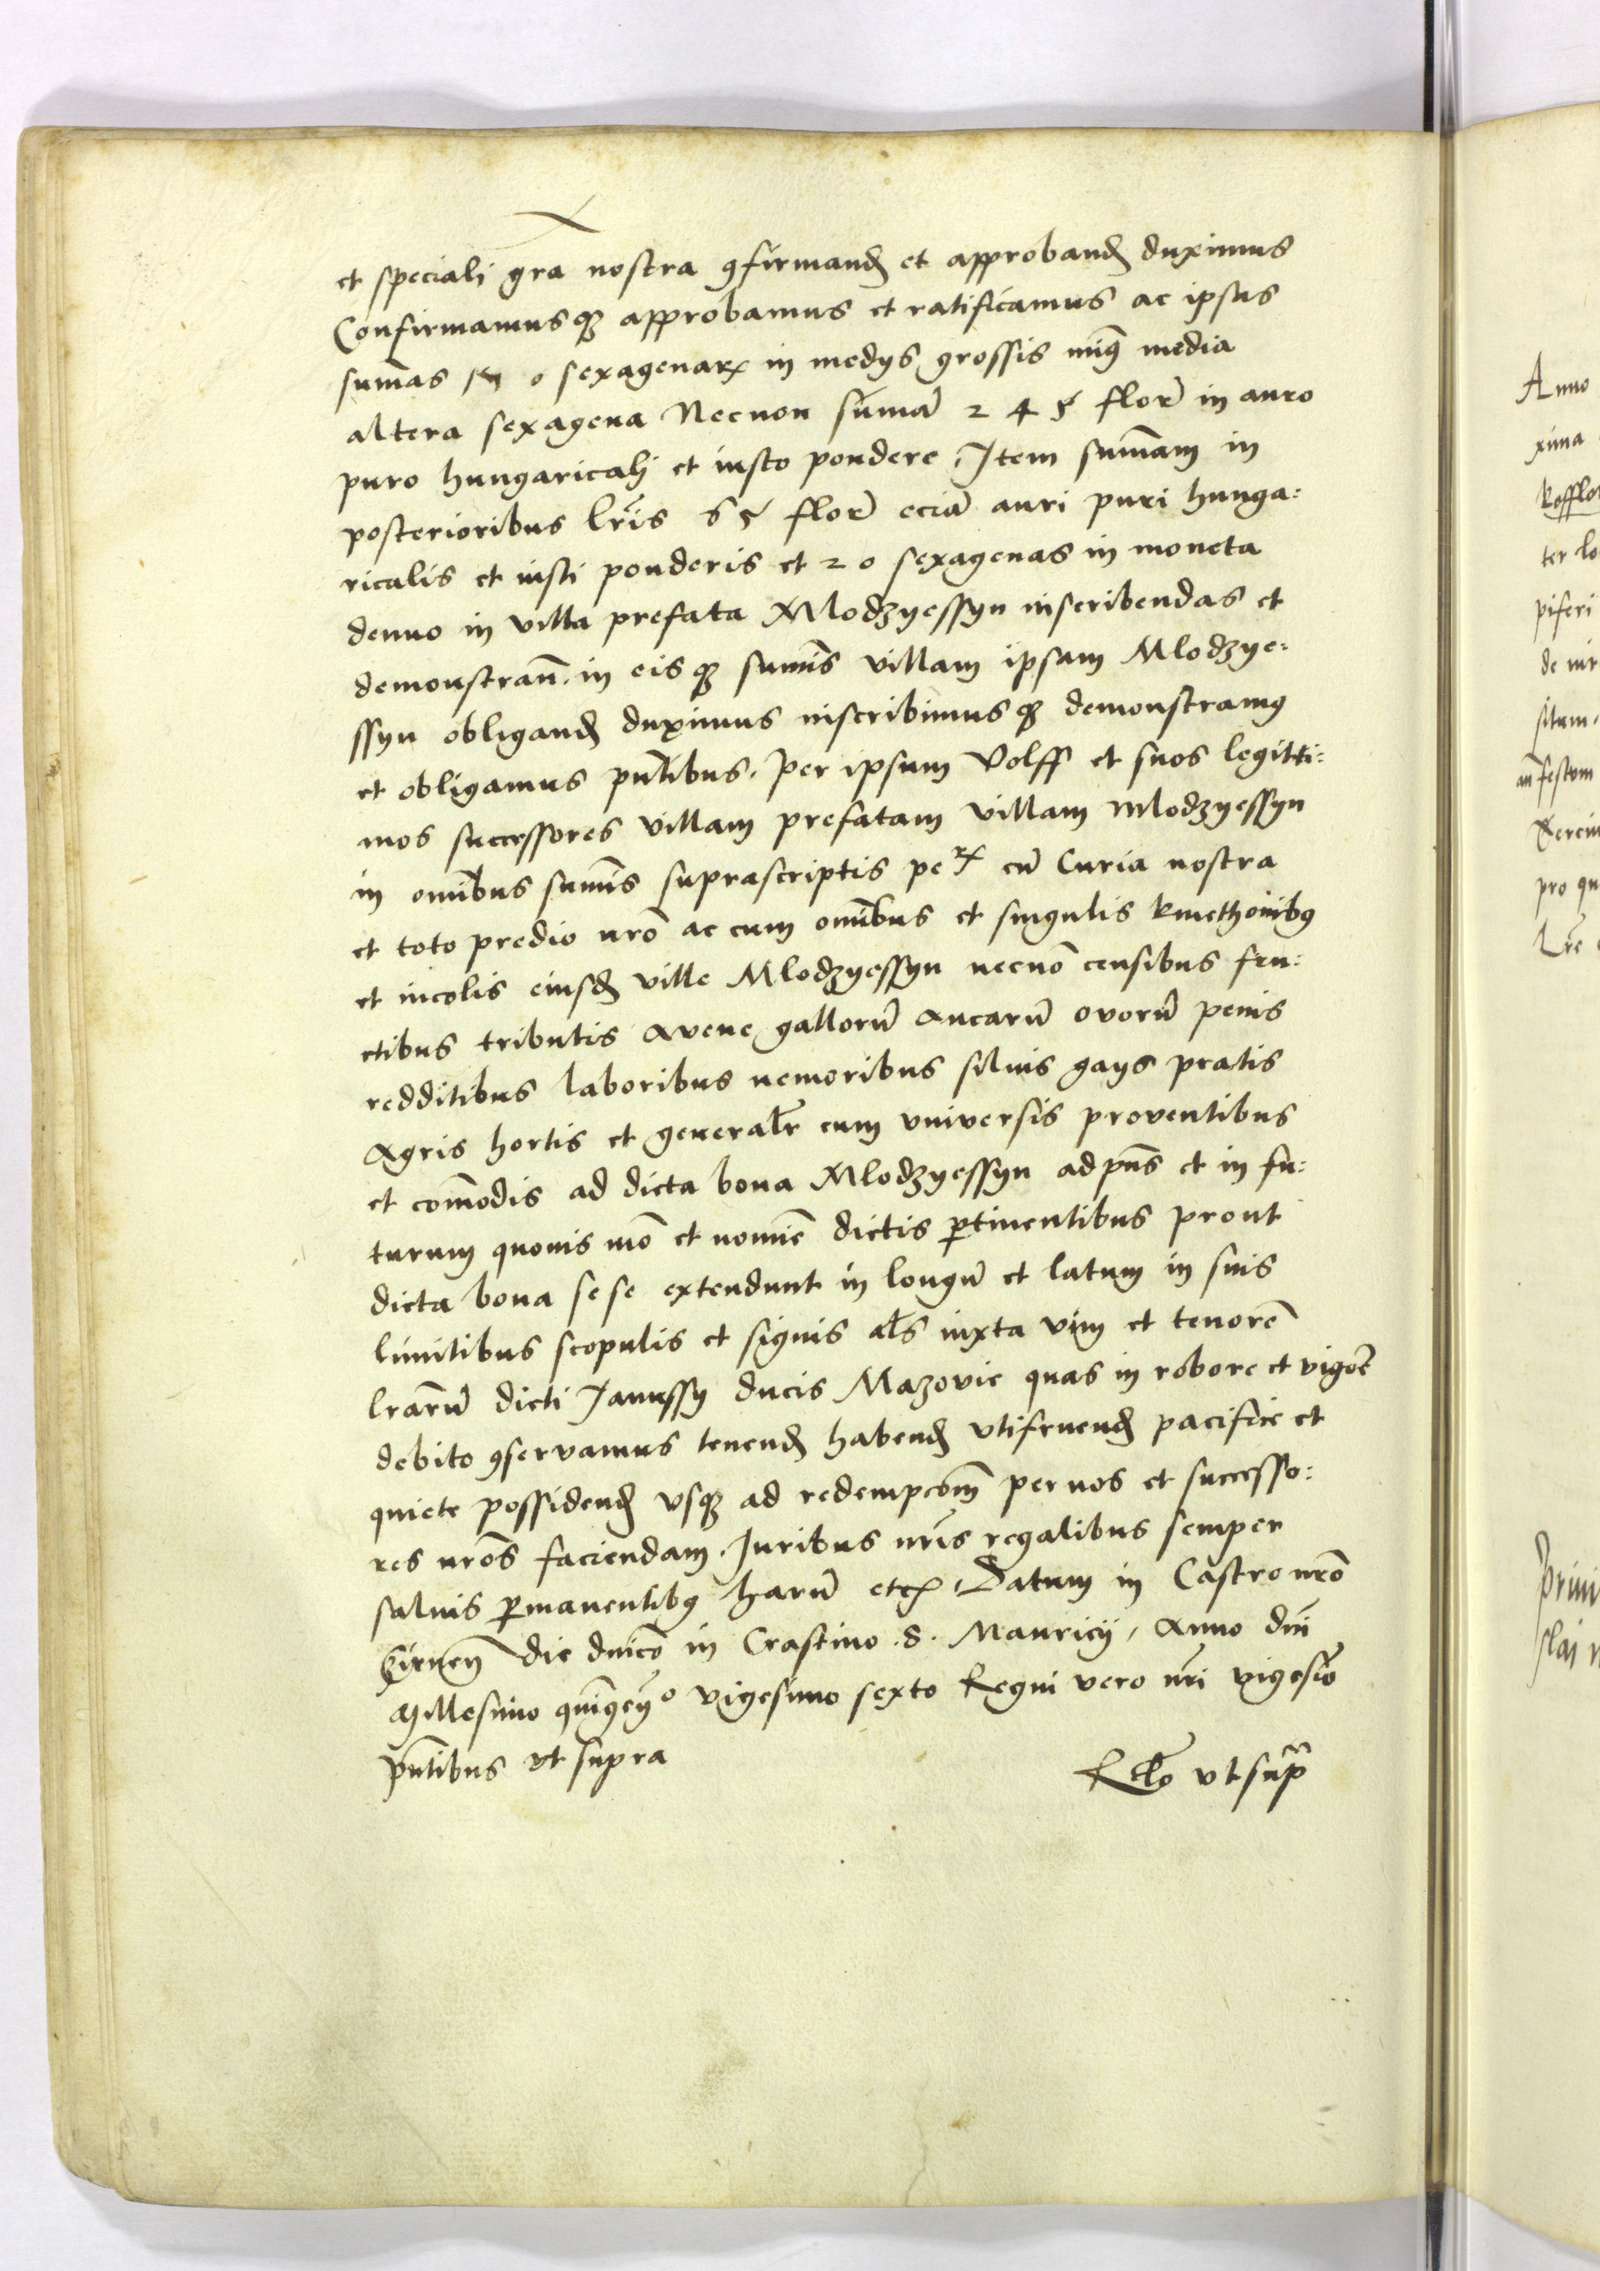 et speciali gra nostra ꝯfirmand et approband duximus
Confirmamusqʒ approbamus et ratificamus ac ipsas
sumas o sexagenarꝝ in medys grossis minꝰ media
altera sexagena Necnon suma 2 4 5 flor in auro
puro hungaricalj et iusto pondere, Item sumam in
posterioribus lris 6 5 flor ecia auri puri hunga:
ricalis et iusti ponderis et 2 0 sexagenas in moneta
denuo in villa prefata Mlodzyessyn inscribendas et
demonstran. in eisqʒ sumis villam ipsam Mlodzye:
ssyn obligand duximus inscribimusqʒ demonstramꝰ
et obligamus pntibus. per ipsum Volff et suos legitti:
mos successores villam prefatam villam Mlodzyessyn
in omibus sumis suprascriptis cu Curia nostra
et toto predio nro ac cum omibus et singulis kmethonibꝰ
et incolis eiusd ville Mlodzyessyn necno censibus fru:
ctibus tributis avene galloru aucaru ovoru penis
redditibus laboribus nemoribus siluis gays pratis
Agris hortis et generalr cum vniversis proventibus
et comodis ad dicta bona Mlodzyessyn ad pns et in fu:
turum quouis mo et nomie dictis ꝑtinentibus prout
dicta bona sese extendunt in longu et latum in suis
limitibus scopulis et signis als iuxta vim et tenore
lraru dicti Janussy ducis Mazovie quas in robore et vigoe
debito ꝯservamus tenend habend vtifruend pacifice et
quiete possidend vsqʒ ad redempcom per nos et successo:
res nros faciendam. Juribus nris regalibus semper
saluis ꝑmanentibꝰ haru etc, Datum in Castro nro
die dnico in Crastino .S. Mauricij, Anno dni
Millesimo quigen⁰ vigesimo sexto Regni vero nri vigesio
pntibus vt supra
Relo vt supra
Anno
xima
ter lo
piferi
situm,
festum
pro qu
Lre